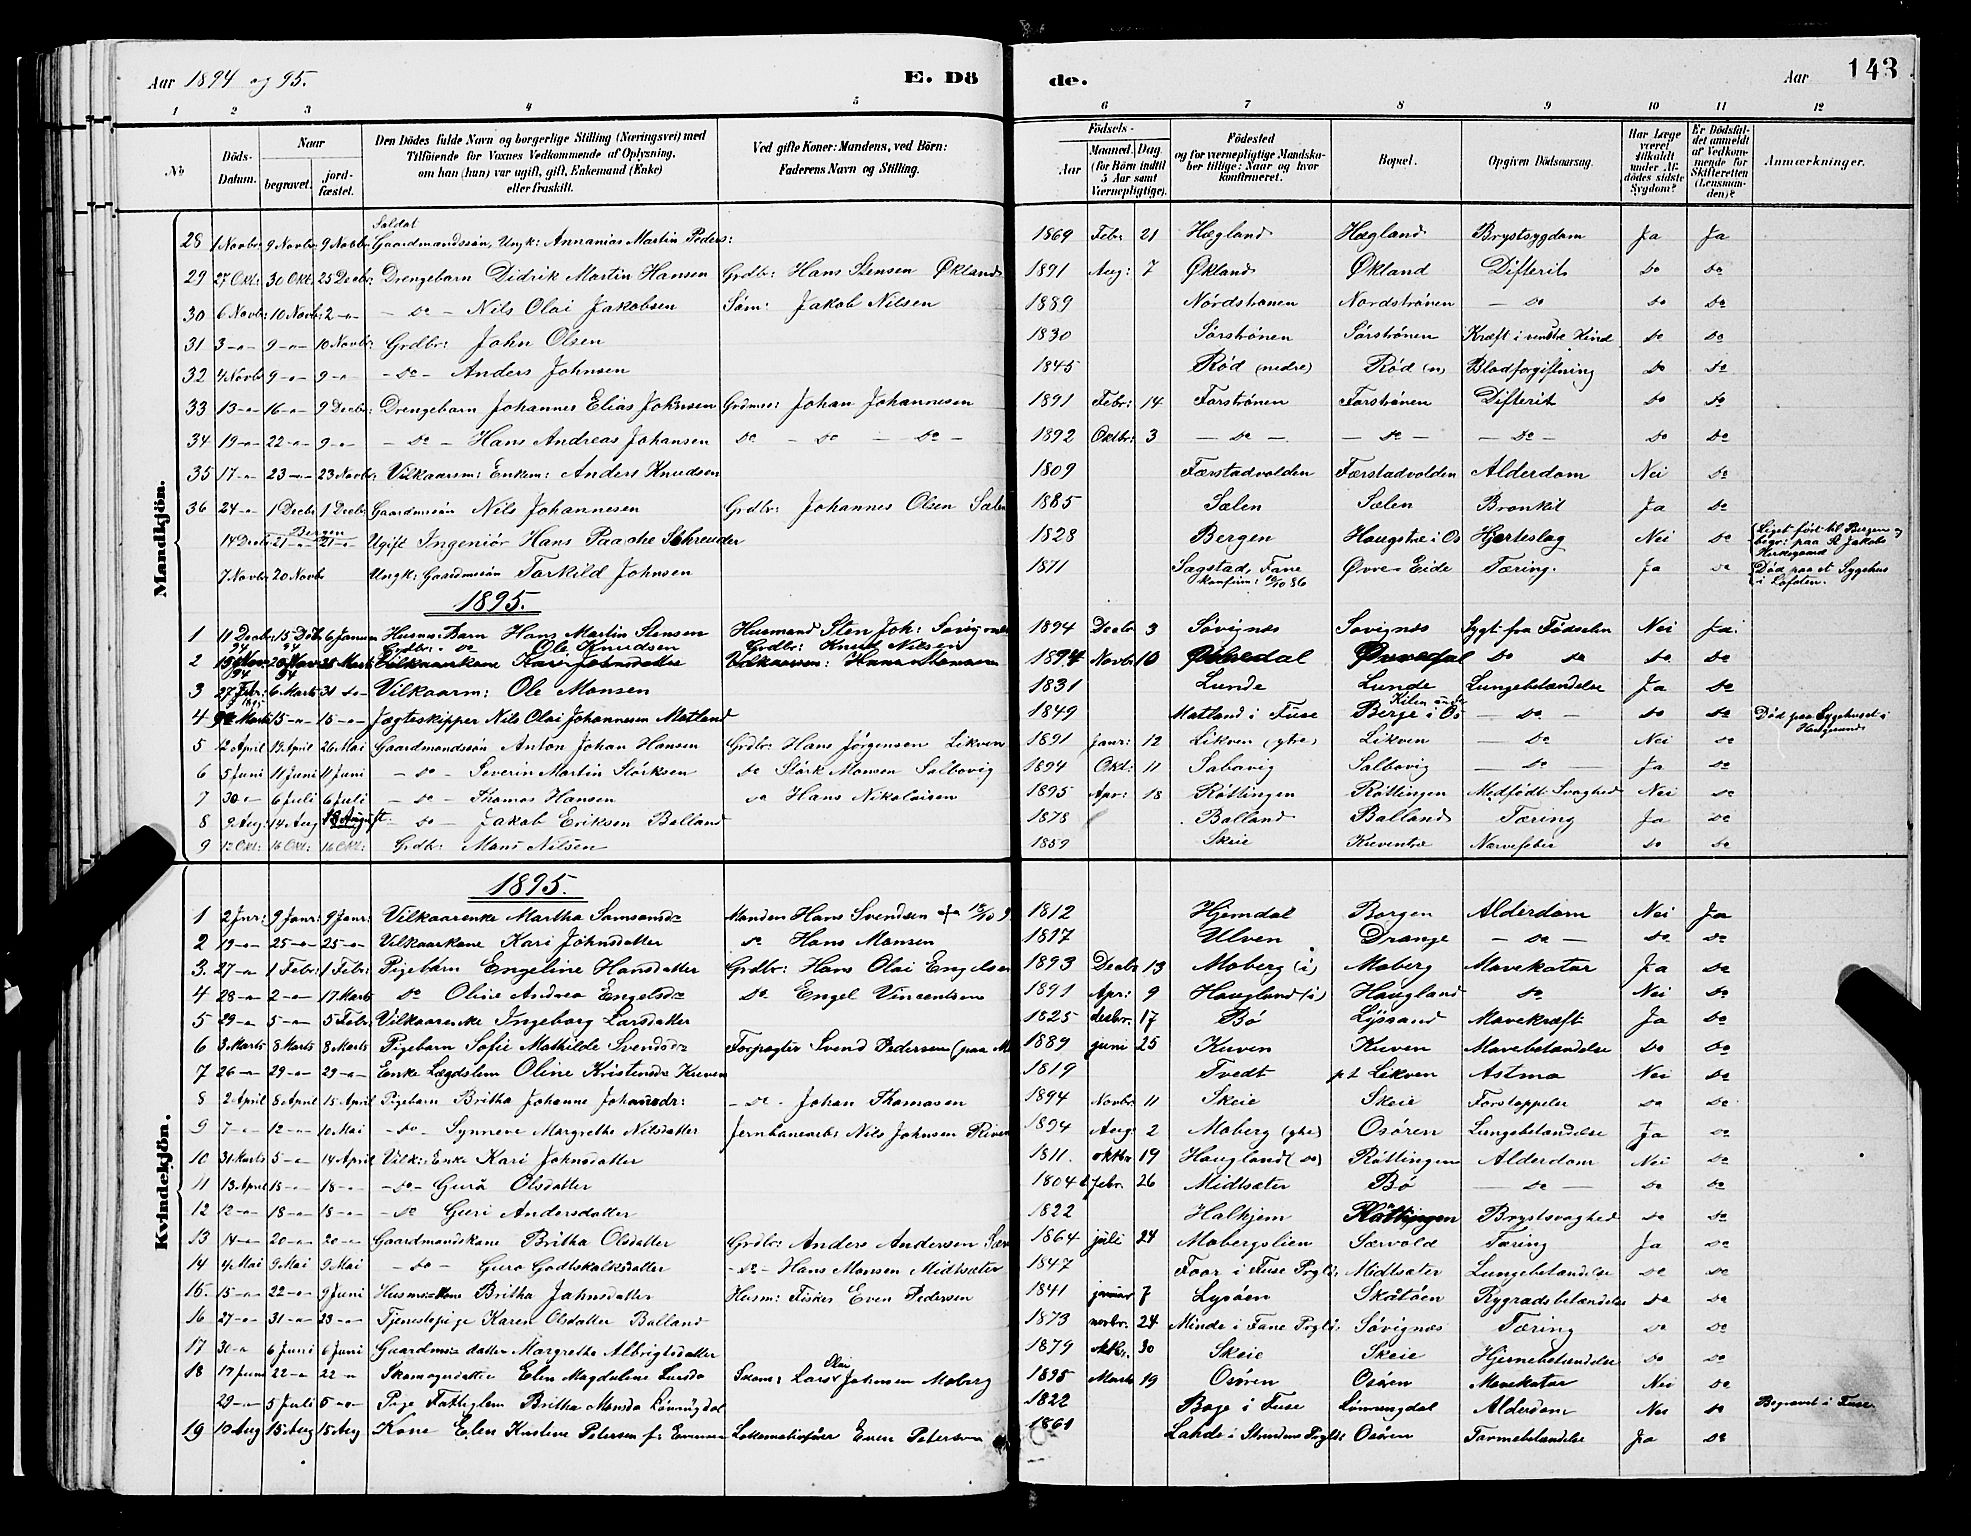 Aar 1894 og 95.
E. Dö
de.
Aar
143
1 2 3 4 5 6 7 8 9 10 11 12
No
Döds-Datum.
Naar
begravet.
jord-fæstet.
Den Dödes fulde Navn og borgerlige Stilling (Næringsvei) med
Tilföiende for Voxnes Vedkommende af Oplysning,
om han (hun) var ugift, gift, Enkemand (Enke)
eller fraskilt.
Ved gifte Koner: Mandens, ved Börn:
Faderens Navn og Stilling.
Födsels-
Aar
Maaned. Dag.
(for Börn indtil
5 Aar samt
Værnepligtige).
Födested
og for værnepligtige Mandska-
ber tillige: Naar og hvor
konfirmeret.
Bopæl.
Opgiven Dödsaarsag.
Har Læge
været
tilkaldt
under Af-
dödes sidste
Sygdom?
Er Dödsfal-
det anmeldt
af Vedkom-
mende for
Skifteretten
(Lensman-
den)?
Anmærkninger.
Mandkjön.
Soldat
28 1 Novbr: 9 Novbr 9 Novbr Gaardmandssön, Ungk: Annanias Martin Peders: 1869 Febr 21 Hægland Hægland Brystsygdom Ja Ja
29 27 Okt: 30 Okt: 25 Decbr: Drengebarn Didrik Martin Hansen Grdbr: Hans Stensen Økland 1891 Aug: 7 Økland Økland Difterit Do Do
30 6 Novbr: 10 Novb: 2 -"- - Do - Nils Olai Jakobsen Søm: Jakob Nilsen 1889 Nordstrønen Nordstrønen - Do Do Do
31 3 -"- 9 -"- 10 Novbr: Grdbr: John Olsen 1830 Sørstrønen Sørstrønen Kræft i venstre Kind Do Do
32 4 Novbr 9 -"- 9 -"- - Do - Anders Johnsen 1845 Rød (nedre) Rød (n) Blodforgiftning Do Do
33 13 -"- 16 -"- 9 Decbr: Drengebarn Johannes Elias Johnsen Grdmsø: Johan Johannesen 1891 Febr: 14 Forstrønen Forstrønen Difterit Do Do
34 19 -"- 22 -"- 9 -"- - Do - Hans Andreas Johansen Do - Do - Do - 1892 Oktbr: 3 - Do - - Do - - Do - Do Do
35 17 -"- 23 -"- 23 Novbr: Vilkaarsm: Enkem: Anders Knudsen 1809 Færstadvolden Færstadvolden Alderdom Nei Do
36 24 -"- 1 Decbr 1 Decbr Gaardmssön Nils Johannesen Grdbr: Johannes Olsen Sælen 1885 Sælen Sælen Bronkit Ja Do
Bergen
14 Decbr 21 -"- 21 -"- Ugift Ingeniör Hans Paasche Schreuder 1828 Bergen Haugstræ i Os Hjerteslag Nei Do Liget ført til Bergen og
begr: paa St Jakobs
Kirkegaard
7 Novbr 20 Novbr Ungk: Gaardmssön Torkild Johnsen 1871 Sagstad, Fane Øvre-Eide Tæring. Ja Do Død paa et Sygehus
konfirm: 86 i Lofoten.
1895.
1 11 Decbr: 15 6 Januar Husms: Barn Hans Martin Stensen Husmand Sten Joh: Søvignes 1894 Decbr 3 Søvignes Søvignes Sygt fra Födselen Nei Ja.
94 94 Grdbr: Do Ole Knudsen Grdbr: Knut Nilsen
2 1894 Novbr 10 Øvredal Do Do Do Do
94 94
3 27 Febr: 6 Marts 31 Do- Vilkaarm: Ole Monsen 1831 Lunde Lunde Lungebetændelse Ja Do
1895
4 Marts 15 -"- 15 -"- Jægteskipper Nils Olai Johannesen Matland 1849 Matland i Fuse Berge i Os - Do - Do Do Död paa Sygehuset i
Haugesund
5 12 April 19 April 26 Mai Gaardmandssön Anton Johan Hansen Grdbr: Hans Jörgensen Likven 1891 Janr: 12 Likven (yhe) Likven - Do Nei Do
6 5 Juni 11 Juni 11 Juni - Do - Severin Martin Störksen Do Störk Monsen Salbovig 1894 Okt: 11 Salbovig - Do - Ja Do
7 30 -"- 6 Juli 6 Juli - Do - Thomas Hansen Do Hans Nikolaisen 1895 Apr: 18 Röttingen Röttingen Medfødt Svaghed Nei Do
8 9 Aug: 14 Aug August - Do - Jakob Eriksen Balland 1878 Balland Balland Tæring Ja Do
9 12 Okt: 16 Okt: 16 Okt: Grdb: Mons Nilsen 1859 Skeie Kuventræ Nervefeber Do Do
Kvindekjön.
1895.
1 2 Jnr: 9 Janr: 9 Janr: Vilkaarenke Martha Samsonsd= Manden Hans Svendsen 1812 Hjemdal Borgen Alderdom Nei Ja
2 19 -"- 25 -"- 25 -"- Vilkaarkone Kari Johnsdatter Do Hans Monsen 1817 Ulven Drange - Do - Do Do
3. 27 -"- 1 Febr: 1 Febr: Pigebarn Engeline Hansdatter Grdbr: Hans Olai Engelsen 1893 Decbr 13 Moberg (i) Moberg Mavekatar Ja Do
4 28 -"- 2 -"- 17 Marts Do Oline Andrea Engelsd= Do Engel Vincentsen 1891 Apr: 9 Haugland (i) Haugland Do Nei Do
5 29 -"- 5 -"- 5 Febr: Vilkaarenke Ingeborg Larsdatter 1825 desbr. 17 Bø Lyssand Mavekræft Ja Do
6 3 Marts 8 Marts 8 Marts Pigebarn Sofie Mathilde Svendsd= Forpagter Svend Pedersen (paa M 1889 juni 25 Kuven Kuven Mavebetændelse Do Do
7 26 -"- 29 -"- 29 -"- Enke Lægdslem Oline Kristensd= Kuven 1819 Tvedt pt Likven Astma Nei Do
8 2 April 8 April 15 April Pigebarn Britha Johanne Johansdr: - Do - Johan Thomasen 1894 Novbr 11 Skeie Skeie Forstoppelse Do Do
9 7 -"- 12 -"- 10 Mai - Do - Synneve Margrethe Nilsdatter Jernbanearb: Nils Johnsen 1894 Aug: 2 Moberg (yhe) Osören Lungebetændelse Ja Do
10 31 Marts 5 -"- 14 April Vilk: Enke Kari Johnsdatter 1811. oktbr 19 Haugland (Do) Röttingen Alderdom Nei Do
11 13 April 18 -"- 18 -"- - Do - Guro Olsdatter 1804 febr. 26 Midtsæter Bø - Do - Do Do
12 12 -"- 18 -"- 18 -"- - Do Guri Andersdatter 1822 Halhjem Röttingen Brystsvaghed Do Do
13 14 -"- 20 -"- 20 -"- Gaardmandskone Britha Olsdatter Grdbr: Anders Andersen 1864 juli 24 Mobergslien Særvold Tæring Ja Do
14 4 Mai 9 Mai 9 Mai - Do - Guro Godtskalksdatter - Do - Hans Monsen Midtsæter 1847 Foor i Fuse Prgld: Midtsæter Lungebetændelse Do Do
15. 15 -"- 22 -"- 9 Juni Husms=Kone Britha Johnsdatter Husm: Fisker Even Pedersen 1841 januar 7 Lysöen Skåtöen Rygradsbetændelse Do Do
16 27 -"- 31 -"- 23 -"- Tjenestepige Karen Olsdatter Balland 1873 novbr. 24 Minde i Fane Prgld: Søvignes Tæring Do Do
17 30 -"- 6 Juni 6 Juni Gaardms= datter Margrethe Albrigtsdatter 1879 oktbr. 30 Skeie Skeie Hjernebetændelse Do Do
18 17 Juni 22 -"- 22 -"- Skomagerdatter Elen Magdalene Larsd= Skom: Lars Olai Johnsen Moberg 1895 Marts 19 Osören Osöen Mavekatar Nei Do
29 -"- 5 Juli 5 -"- Pige Fattiglem Britha Monsd= Lönningdal 1822 Boge i Fuse Lönningdal Alderdom Nei Do Begravet i Fuse
19 10 Aug 15 Aug 15 Aug Kone Elen Kristine Petersen f. Lokomotivförer Even Petersen 1861 Osören Tarmebetændelse Ja Do